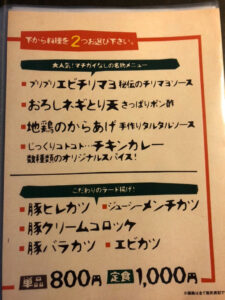 下から料理を2つお選び下さい。
大人気!マチガイなしの名物メニュー
プリプリエビチリマヨ 秘伝のチリマヨソース
おろしネギとり天 さっぱりポン酢
地鶏のからあげ 手作りタルタルソース
じっくりコトコト…チキンカレー
数種類のオリジナルスパイス!
こだわりのラード揚げ!
豚ヒレカツ ジューシーメンチカツ
豚クリームコロッケ
豚バラカツ エビカツ
単品800円 定食1,000円